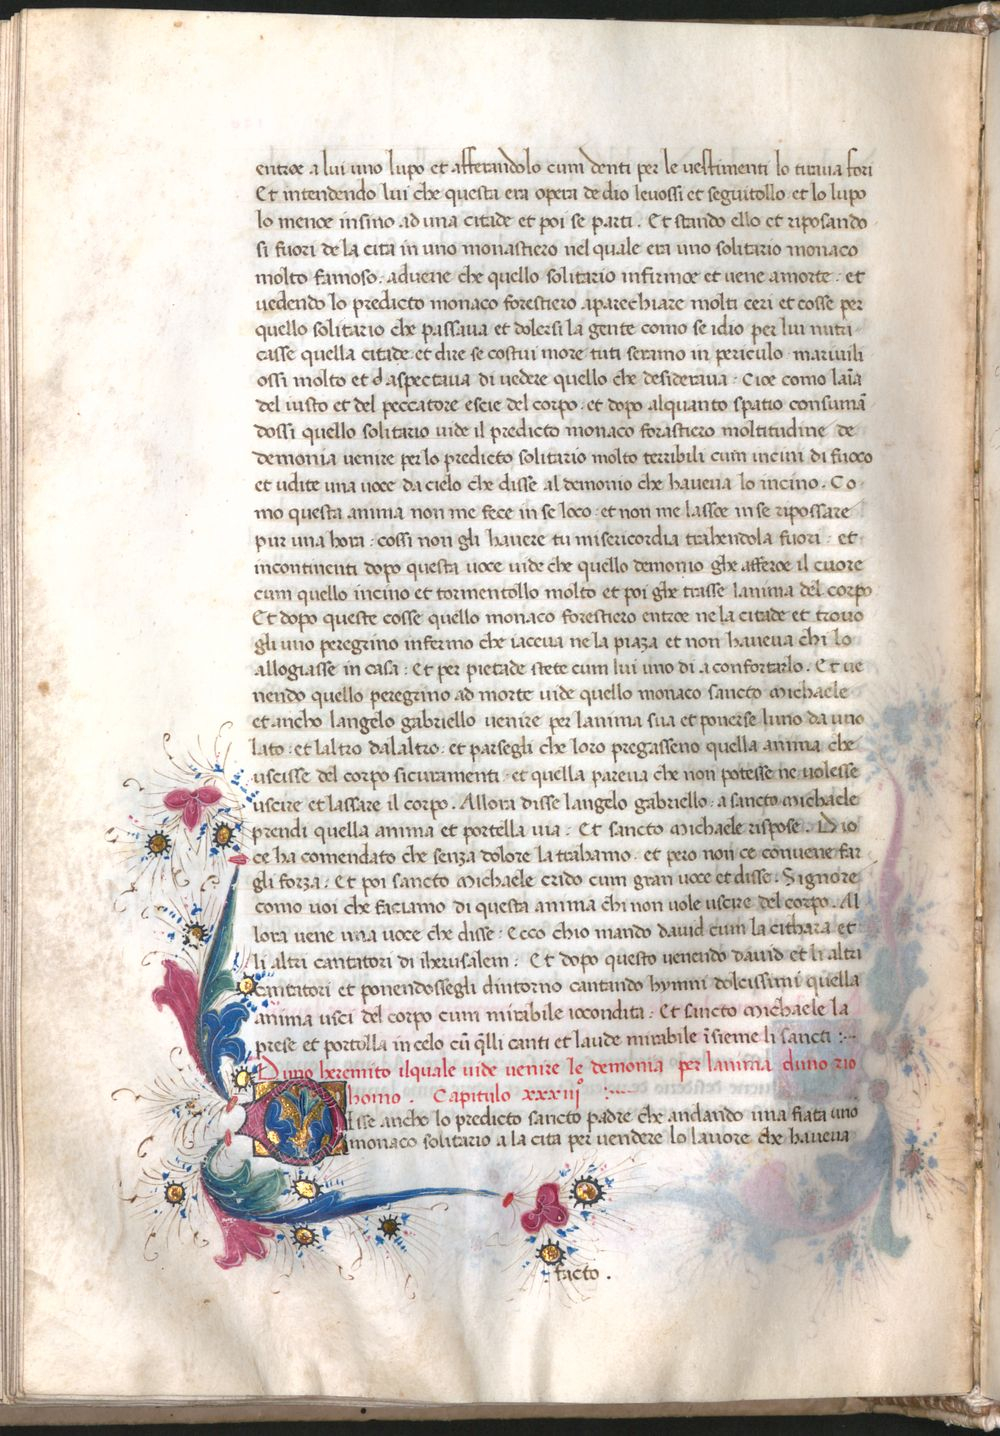 entroe a lui uno lupo et afferandolo cum denti per le vestimenti lo tirava fori
Et intendendo lui che questa era opera de dio levossi et seguitollo et lo lupo
lo menoe insino ad una citade et poi se parti. Et stando ello et riposando
si fuori de la cita in uno monastiero nel quale era uno solitario monaco
molto famoso. advene che quello solitario infirmoe et vene a morte. et
vedendo lo predicto monaco forestiero aparechiare molti ceri et cosse per
quello solitario che passava et dolersi la gente como se idio per lui nutri
casse quella citade et dire se costui more tuti seramo in periculo. maravili
ossi molto et aspectava di vedere quello che desiderava. Cioe como laīa
del iusto et del peccatore escie del corpo. et dopo alquanto spatio consumā
dossi quello solitario vide il predicto monaco forastiero moltitudine de
demonia venire per lo predicto solitario molto terribili cum incini di fuoco
et udite una voce da cielo che disse al demonio che haveva lo incino. Co
mo questa anima non me fece in se loco. et non me lassoe in se ripossare
pur una hora. cossi non gli havere tu misericordia trahendola fuori. et
incontinenti dopo questa voce vide che quello demonio ghe afferoe il cuore
cum quello incino et tormentollo molto et poi ghe trasse lanima del corpo
Et dopo queste cosse quello monaco forestiero entroe ne la citade et trovo
gli uno peregrino infermo che iaceva ne la piaza et non haveva chi lo
allogiasse in casa. Et per pietade stete cum lui uno di a confortarlo. Et ve
nendo quello peregrino ad morte vide quello monaco sancto Michaele
et ancho langelo gabriello venire per lanima sua et ponerse luno da uno
lato. et laltro dalaltro. et parsegli che loro pregasseno quella anima che
uscisse del corpo sicuramenti. et quella pareva che non potesse ne volesse
uscire et lassare il corpo. Allora disse langelo gabriello. a sancto Michaele
prendi quella anima et portella via. Et sancto Michaele rispose. Dio
ce ha comendato che senza dolore la trahamo. et pero non ce convene far
gli forza. Et poi sancto Michaele crido cum gran voce et disse. Signore
como voi che faciamo di questa anima chi non vole uscire del corpo. Al
lora vene una voce che disse. Ecco chio mando david cum la cithara et
li altri cantatori di iherusalem. Et dopo questo venendo david et li altri
cantatori et ponendossegli dintorno cantando hymni dolcissimi quella
anima usci del corpo cum mirabile iocondita. Et sancto Michaele la
prese et portolla in celo cū q̄lli canti et laude mirabile īsieme li sancti.
Duno heremito ilquale vide venire le demonia per lanima duno rio
homo. Capitulo xxxiijº
Disse ancho lo predicto sancto padre che andando una fiata uno
monaco solitario a la cita per vendere lo lavore che haveva
facto.